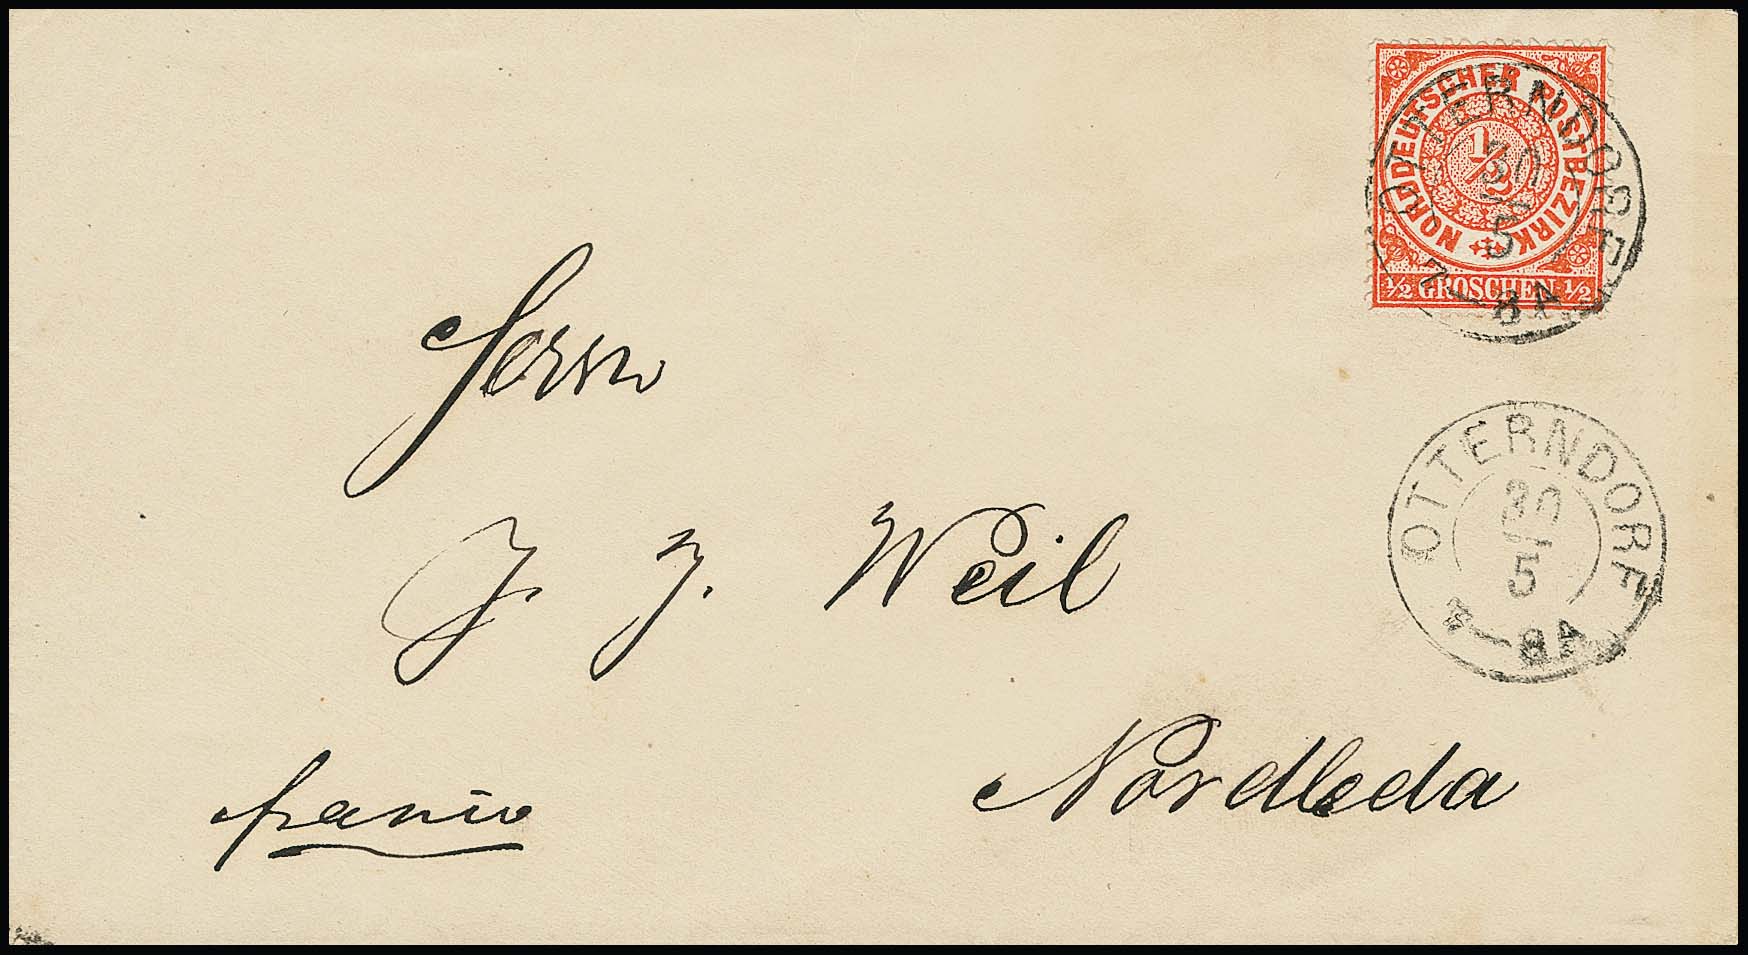 NORDDEUTSCHER POSTBEZIRK
1/2
1/2 GROSCHEN 1/2
OTTERNDORF
30
5
7-8A
OTTERNDORF
30
5
7-8A
Herrn
J. J. Weil
Nordleda
franco